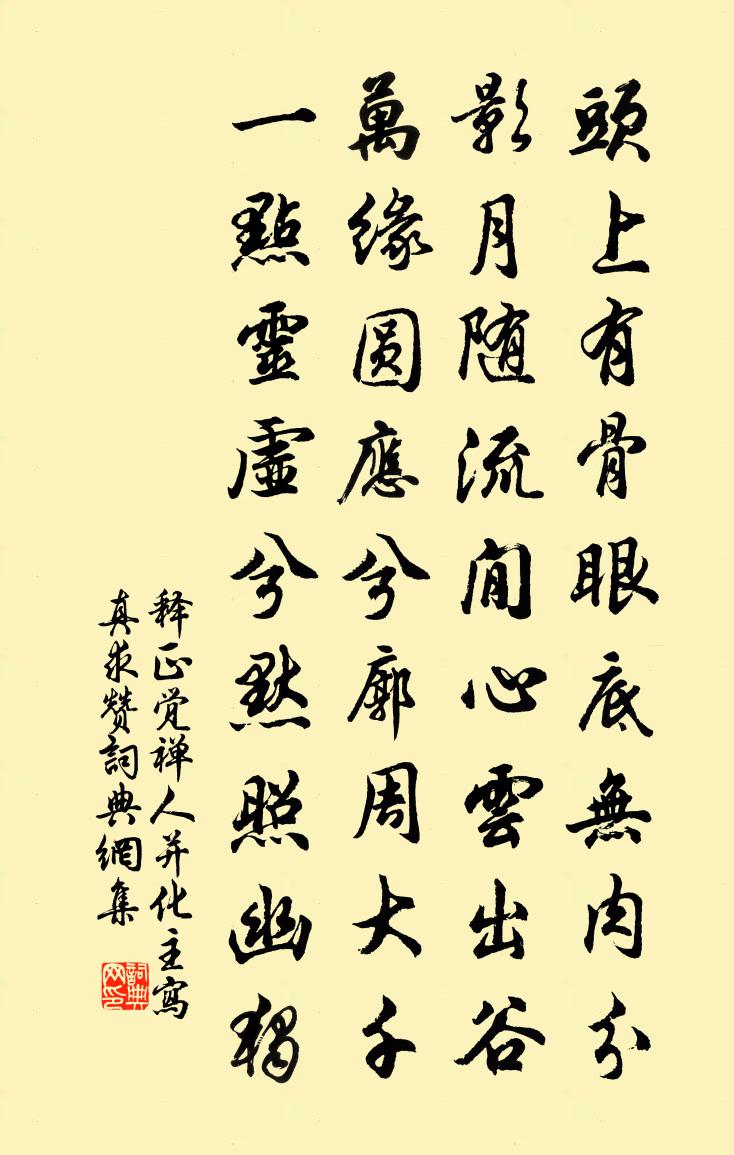 頭上有骨眼底無肉分
影月随流閒心雲出谷
萬缘圆應兮廓周大千
一點靈虛兮默照幽獨
释正觉禅人并化主寫
真求赞詞典網集
詞典网印